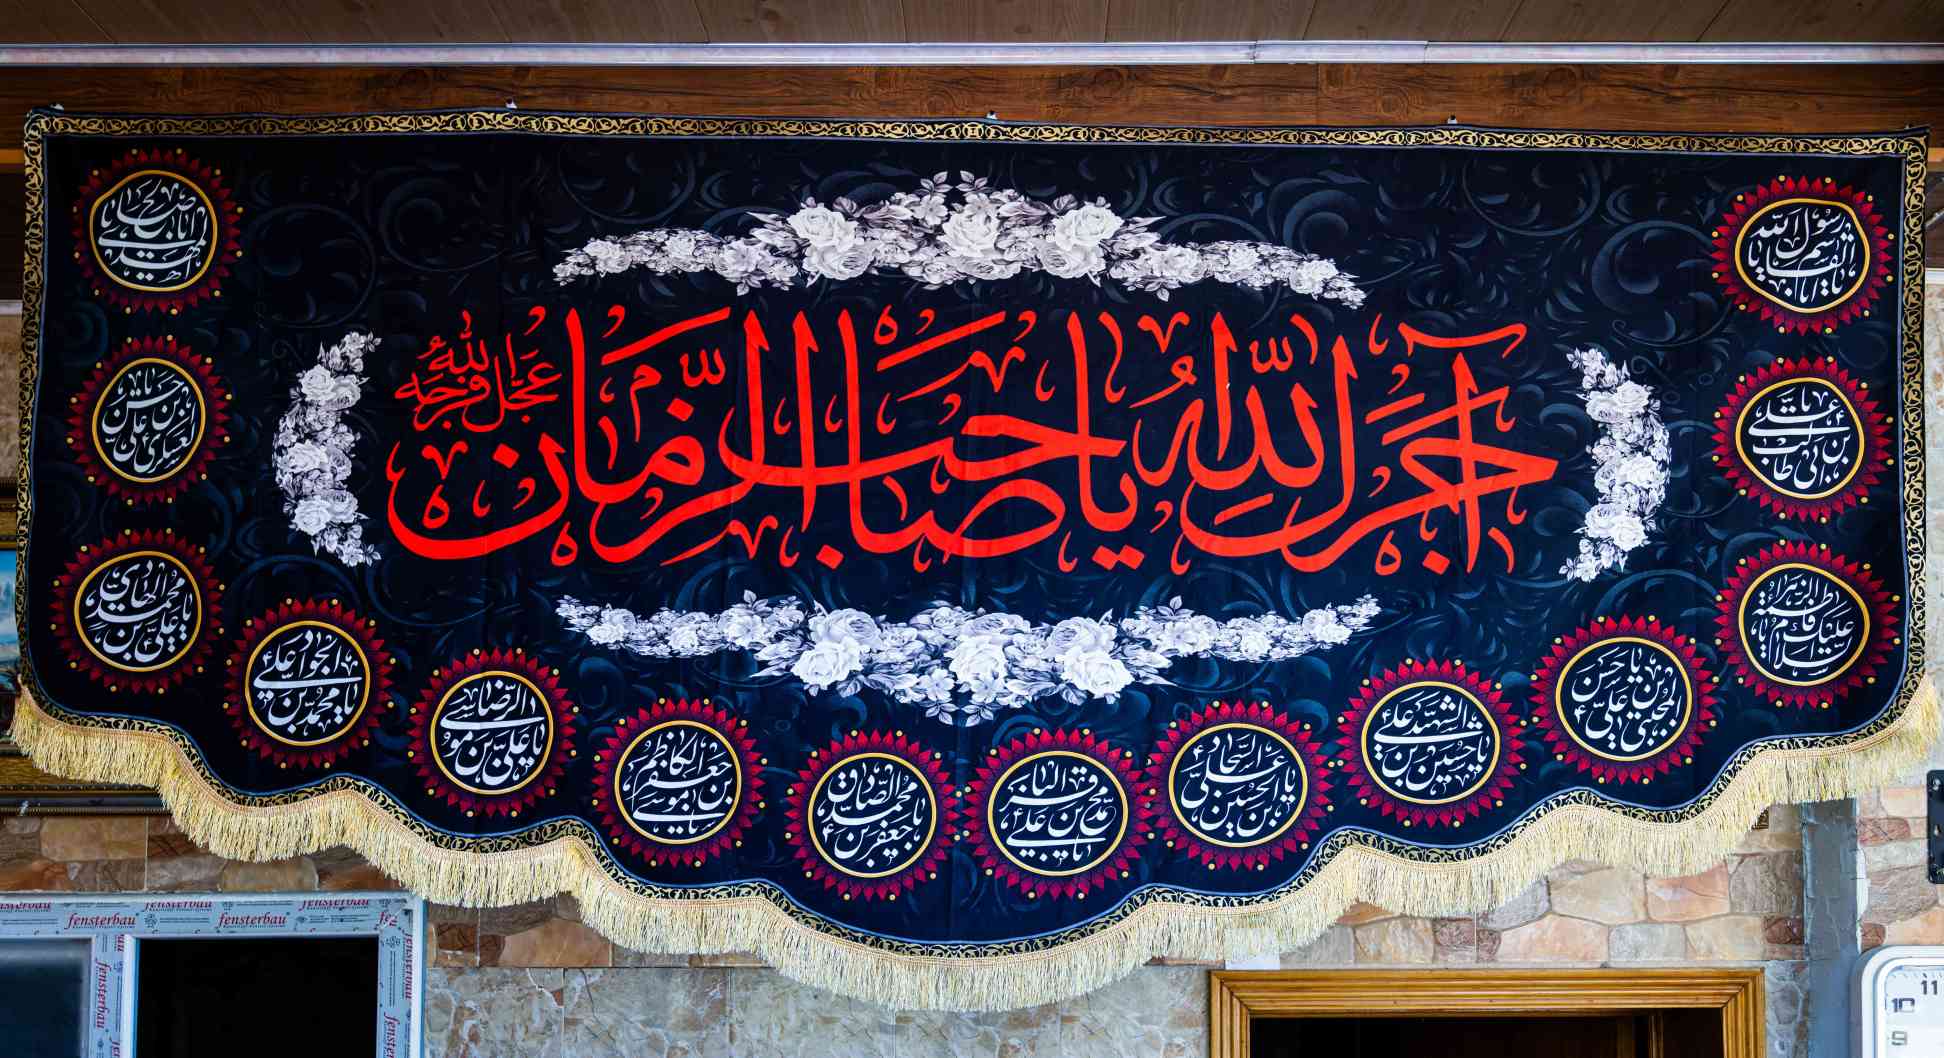 آجرک الله یا صاحب الزمان
عَجَّلَ اللهُ فَرَجَهُ
یا اباالقاسم یا رسول الله
یا علی بن ابی طالب
السلام علیک یا فاطمة الزهرا
یا حسن بن علی المجتبی
یا حسین بن علی الشهید
یا علی بن الحسین السجاد
یا محمد بن علی الباقر
یا جعفر بن محمد الصادق
یا موسی بن جعفر الکاظم
یا علی بن موسی الرضا
یا محمد بن علی الجواد
یا علی بن محمد الهادی
یا حسن بن علی العسکری
یا اباصالح المهدی
fensterbau fensterbau fensterbau
fensterbau
fensterbau
fensterbau
11
10
9